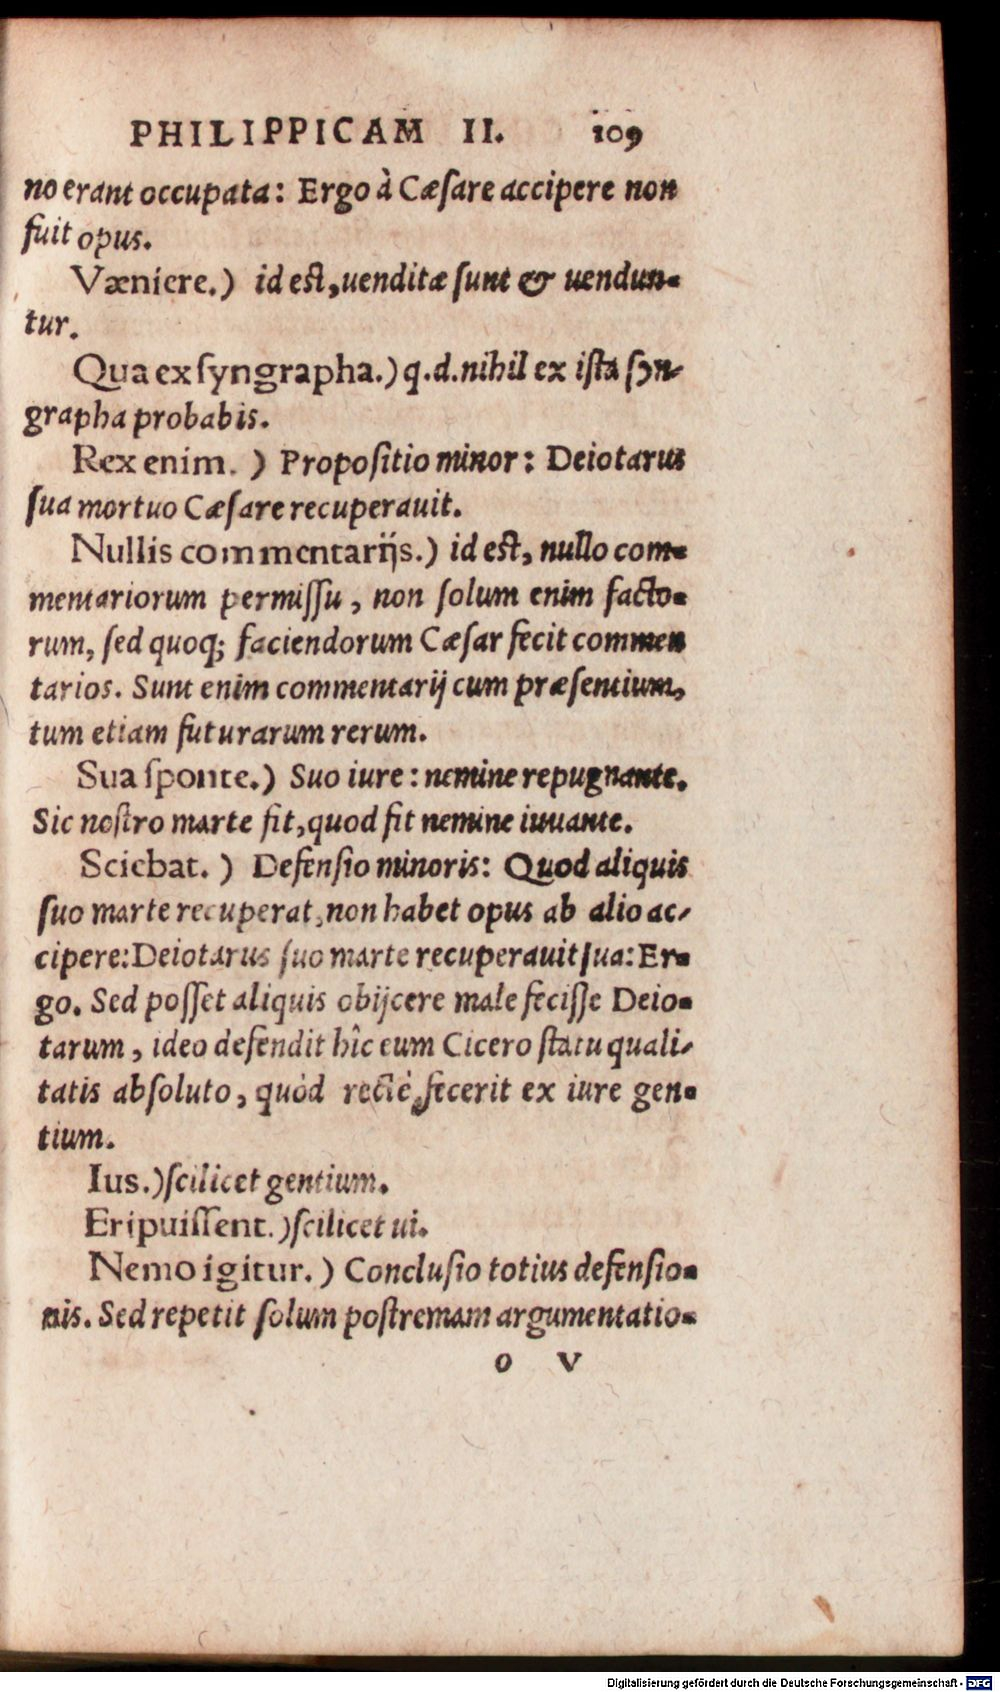 PHILIPPICAM II. 109
no erant occupata: Ergo à Cæsare accipere non
fuit opus.
Væniere.) id est, uenditæ sunt & uendun-
tur.
Qua ex syngrapha.) q.d. nihil ex ista syn-
grapha probabis.
Rex enim.) Propositio minor: Deiotarus
sua mortuo Cæsare recuperauit.
Nullis commentarijs.) id est, nullo com-
mentariorum permissu, non solum enim facto-
rum, sed quoq; faciendorum Cæsar fecit commen
tarios. Sunt enim commentarij cum præsentium,
tum etiam futurarum rerum.
Sua sponte.) Suo iure: nemine repugnante.
Sic nostro marte fit, quod fit nemine iuuante.
Sciebat.) Defensio minoris: Quod aliquis
suo marte recuperat, non habet opus ab alio ac-
cipere: Deiotarus suo marte recuperauit sua: Er-
go. Sed posset aliquis obijcere male fecisse Deio-
tarum, ideo defendit hîc eum Cicero statu quali-
tatis absoluto, quòd rectè fecerit ex iure gen-
tium.
Ius.) scilicet gentium.
Eripuissent.) scilicet ui.
Nemo igitur.) Conclusio totius defensio-
nis. Sed repetit solum postremam argumentatio-
O V
Digitalisierung gefördert durch die Deutsche Forschungsgemeinschaft - DFG